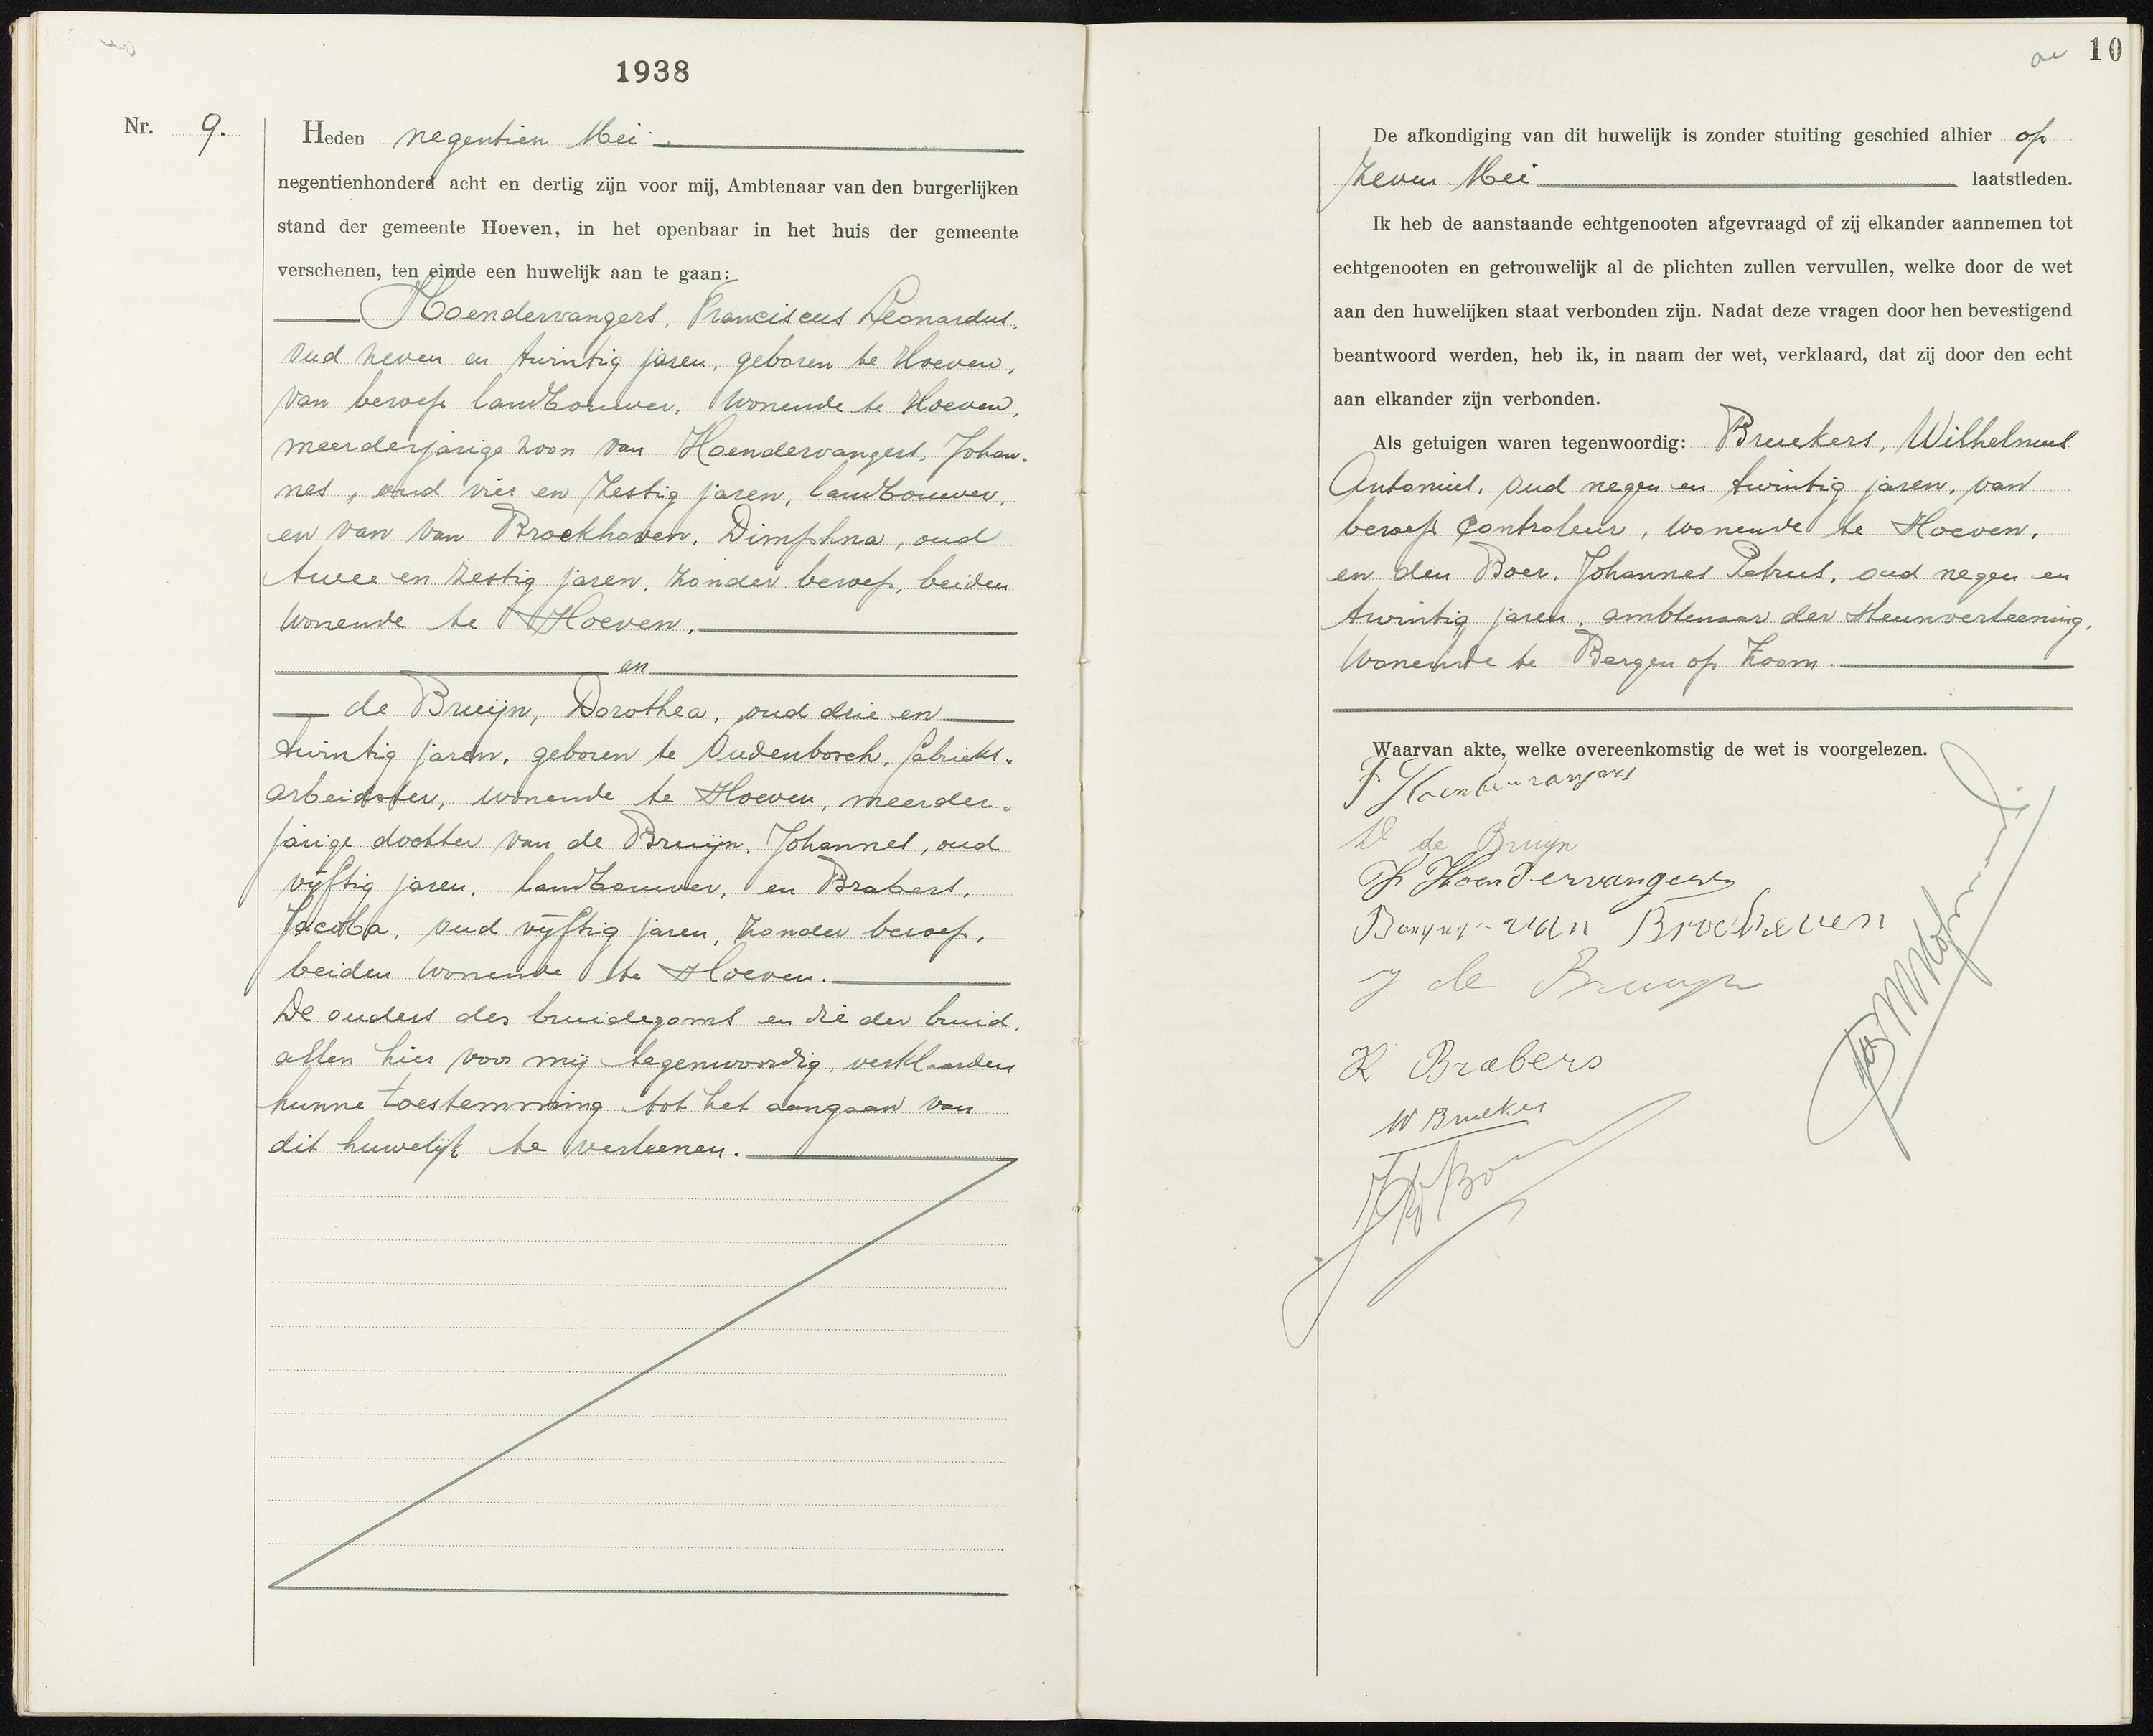 1938
Nr. 9.
Heden negentien Mei
negentienhonderd acht en dertig zijn voor mij, Ambtenaar van den burgerlijken
stand der gemeente Hoeven, in het openbaar in het huis der gemeente
verschenen, ten einde een huwelijk aan te gaan:
Hoendervangers, Franciscus Leonardus,
oud zeven en twintig jaren, geboren te Hoeven,
van beroep landbouwer, wonende te Hoeven,
meerderjarige zoon van Hoendervangers, Johan-
nes, oud vier en zestig jaren, landbouwer,
en van van Brockhoven, Dimphna, oud
twee en zestig jaren, zonder beroep, beiden
wonende te Hoeven.
en
de Bruijn, Dorothea, oud drie en
twintig jaren, geboren te Oudenbosch, fabrieks-
arbeidster, wonende te Hoeven, meerder-
jarige dochter van de Bruijn, Johannes, oud
vijftig jaren, landbouwer, en Brabers,
Jacoba, oud vijftig jaren, zonder beroep,
beiden wonende te Hoeven.
De ouders des bruidegoms en die der bruid,
allen hier voor mij tegenwoordig, verklaarden
hunne toestemming tot het aangaan van
dit huwelijk te verleenen.
10
De afkondiging van dit huwelijk is zonder stuiting geschied alhier op
zeven Mei laatstleden.
Ik heb de aanstaande echtgenooten afgevraagd of zij elkander aannemen tot
echtgenooten en getrouwelijk al de plichten zullen vervullen, welke door de wet
aan den huwelijken staat verbonden zijn. Nadat deze vragen door hen bevestigend
beantwoord werden, heb ik, in naam der wet, verklaard, dat zij door den echt
aan elkander zijn verbonden.
Als getuigen waren tegenwoordig: Bruekers, Wilhelmus
Antonius, oud negen en twintig jaren, van
beroep controleur, wonende te Hoeven,
en den Boer, Johannes Petrus, oud negen en
twintig jaren, ambtenaar der steunverleening,
wonende te Bergen op Zoom.
Waarvan akte, welke overeenkomstig de wet is voorgelezen.
F Hoendervangers
D de Bruyn
Hoendervangers
van
J de Bruyn
K Brabers
W Bruekers